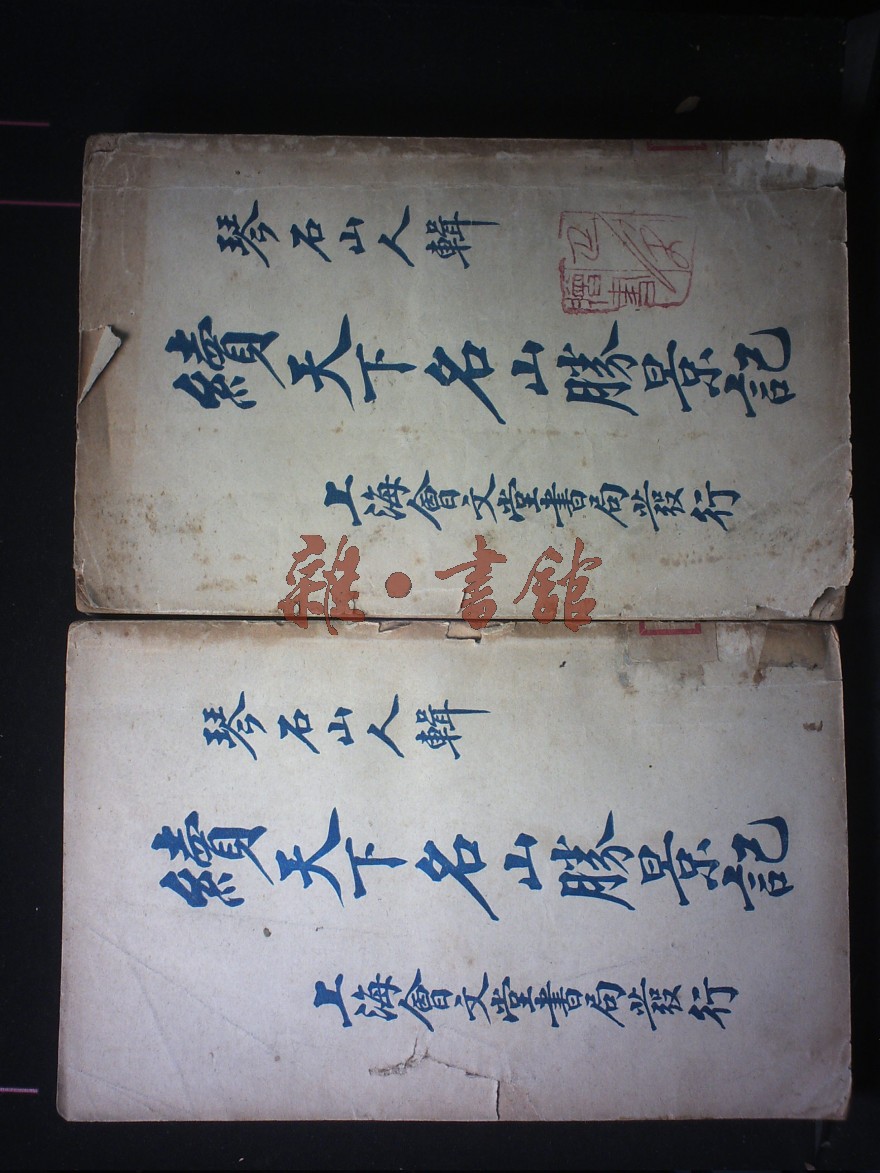 琴石山人輯
續天下名山勝景記
上海會文堂書局發行
雜·書館
琴石山人輯
續天下名山勝景記
上海會文堂書局發行